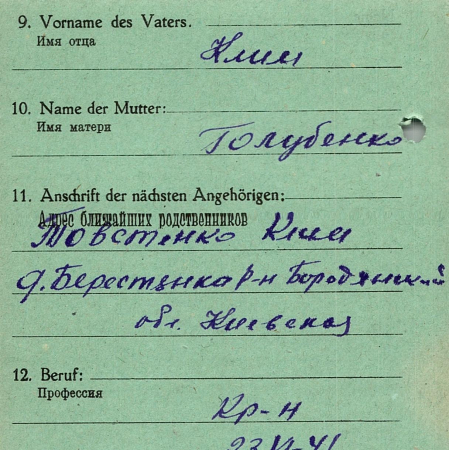 9. Vorname des Vaters.
Имя отца
Клим
10. Name der Mutter:
Имя матери
Голубенко
11. Anschrift der nächsten Angehörigen:
Адрес ближайших родственников
Товстенко Клим
д. Берестянка р-н Бородянский
обл. Киевская
12. Beruf:
Профессия
Кр-н
23.VI-41